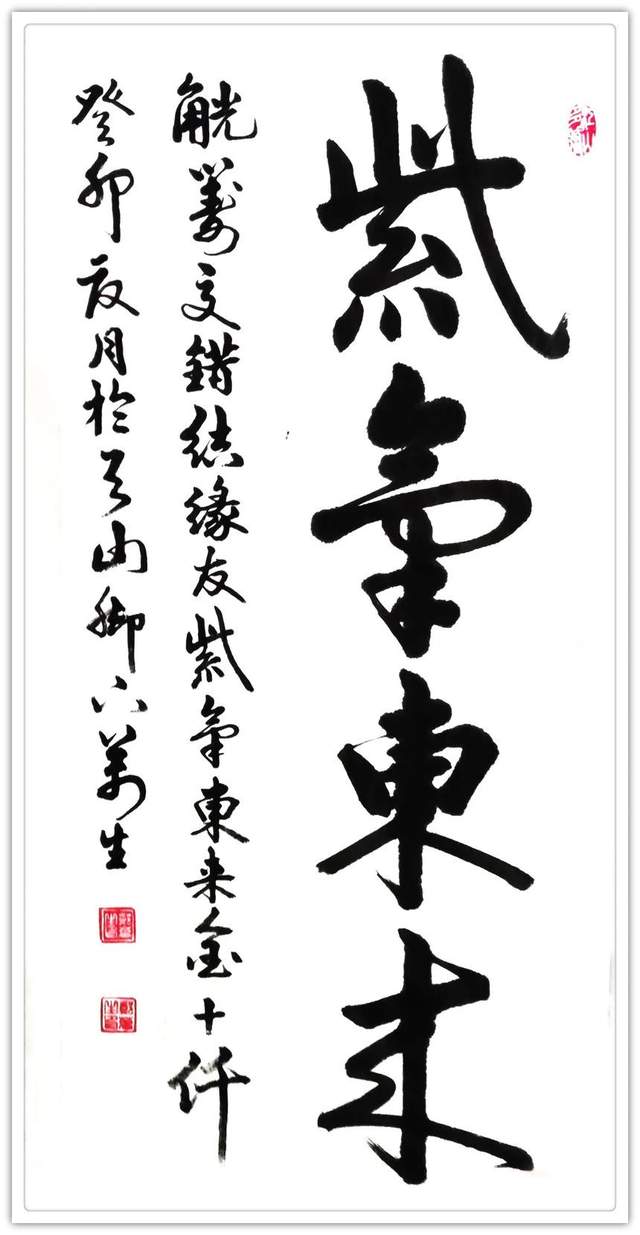 紫氣東来
觥籌交錯結緣友紫氣東来金十仟
癸卯夜月於天山脚下万生